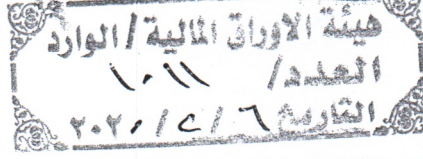 هيئة الاوراق المالية / الوارد
العدد / ١٠١١
التاريخ ٦ / ٢ / ٢٠٢٠